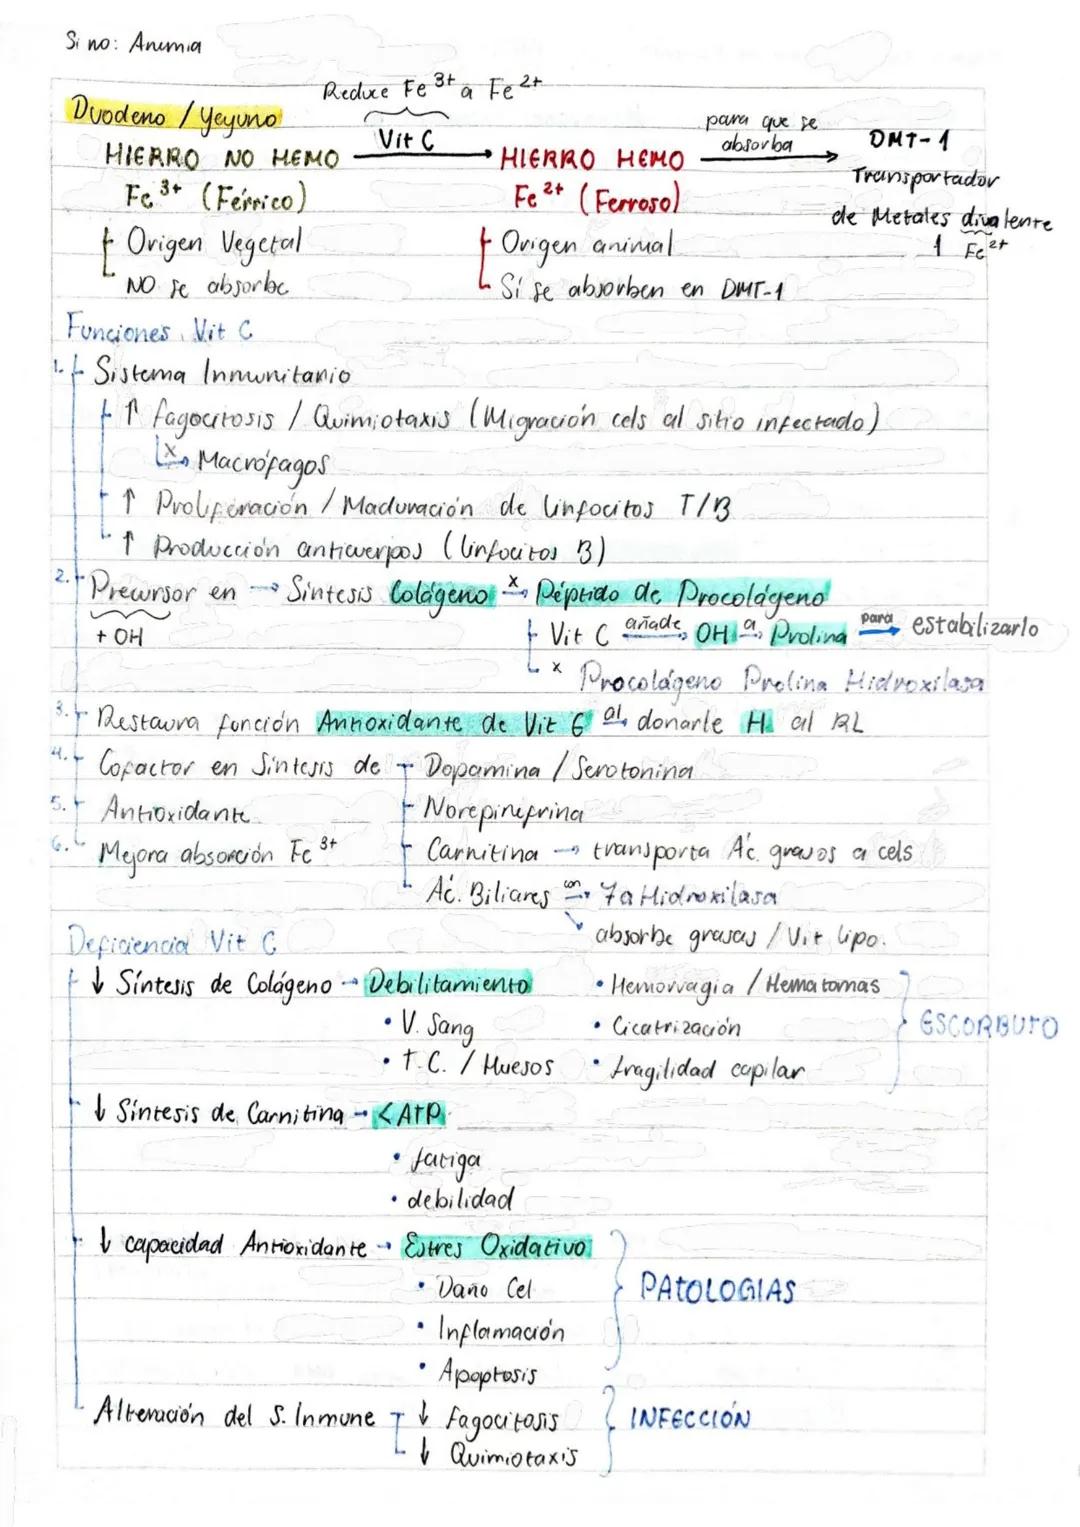 Si no: Anemia
Reduce Fe 3+ a Fe 2+
Duodeno / Yeyuno
HIERRO NO HEMO Vit C → HIERRO HEMO para que se absorba → DMT-1
Fe 3+ (Férrico) Fe 2+ (Ferroso) Transportador
de Metales divalente
Origen Vegetal Origen animal 1 Fe 2+
NO se absorbe Sí se absorben en DMT-1
Funciones Vit C
1. Sistema Inmunitario
↑ fagocitosis / Quimiotaxis (Migración cels al sitio infectado)
x → Macrófagos
↑ Proliferación / Maduración de linfocitos T/B
↑ Producción anticuerpos (linfocitos B)
2. Precursor en → Síntesis Colágeno x → Péptido de Procolágeno
+ OH Vit C añade → OH a → Prolina para → estabilizarlo
x Procolágeno Prolina Hidroxilasa
3. Restaura función Antioxidante de Vit E al → donarle H al RL
4. Cofactor en Síntesis de Dopamina / Serotonina
5. Antioxidante Norepinefrina
6. Mejora absorción Fe 3+ Carnitina → transporta Ác. grasos a cels
Ác. Biliares con → 7a Hidroxilasa
absorbe grasas / Vit lipo.
Deficiencia Vit C
↓ Síntesis de Colágeno → Debilitamiento • Hemorragia / Hematomas
• V. Sang • Cicatrización ESCORBUTO
• T.C. / Huesos • fragilidad capilar
↓ Síntesis de Carnitina → < ATP
• fatiga
• debilidad
↓ capacidad Antioxidante → Estres Oxidativo
• Daño Cel PATOLOGIAS
• Inflamación
• Apoptosis
Alteración del S. Inmune ↓ fagocitosis INFECCIÓN
↓ Quimiotaxis